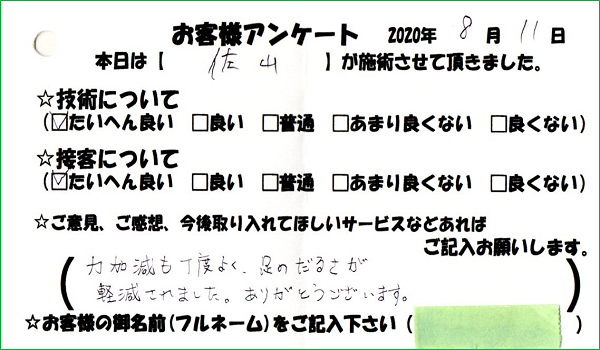 お客様アンケート 2020年 8月 11日
本日は【 佐山 】が施術させて頂きました。
☆技術について
(☑たいへん良い □良い □普通 □あまり良くない □良くない)
☆接客について
(☑たいへん良い □良い □普通 □あまり良くない □良くない)
☆ご意見、ご感想、今後取り入れてほしいサービスなどあれば
ご記入お願いします。
(力加減も丁度よく、足のだるさが
軽減されました。ありがとうございます。)
☆お客様の御名前(フルネーム)をご記入下さい( )